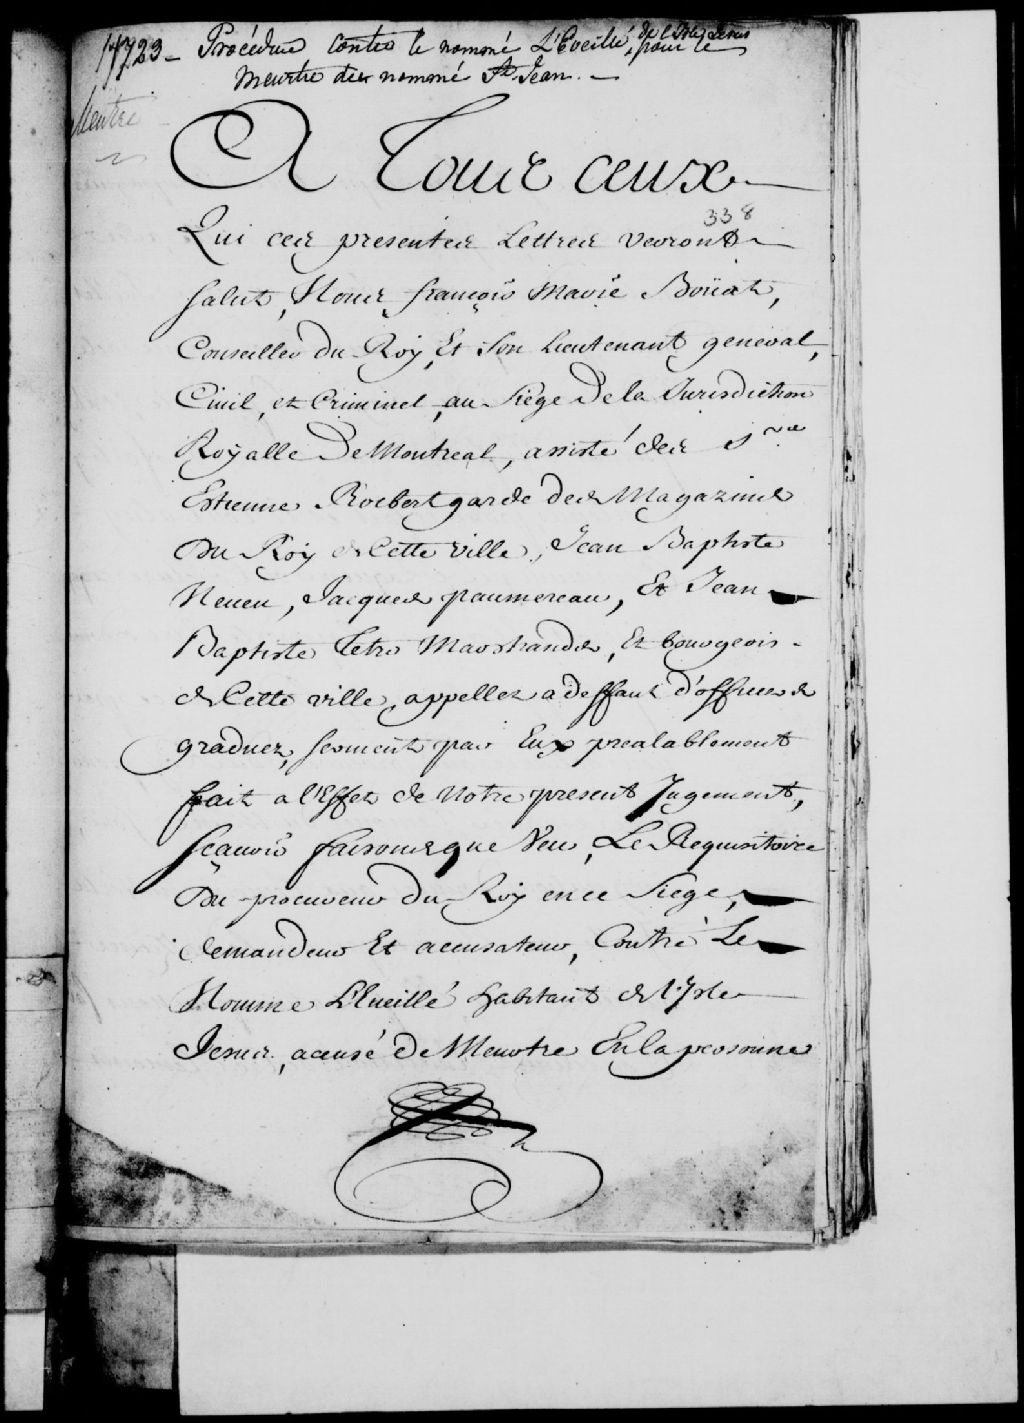 1723 - Procédure contre le nommé L'Éveillé, de l'Isle Jesus pour le
meurtre du nommé St Jean. -
Meurtre
A Tous ceux
338
Qui ces presentes Lettres verront
Salut, Nous, françois Marie Boüat,
Conseiller du Roy, Et Son Lieutenant general,
Civil, et Criminel, au Siege De la Jurisdiction
Royalle De Montreal, assisté des Srs
Estienne Rocbert garde des Magazins
Du Roy de Cette ville, Jean Baptiste
Neveu, Jacques paumereau, Et Jean
Baptiste Tetro Marchands, Et bourgeois
de Cette ville, appellez a deffaut d'officiers
graduez, serment par Eux prealablement
fait a l'Effet de Notre present Jugement,
sçavoir faisons que Veu, Le Requisitoire
Du procureur du Roy en ce Siege,
demandeur Et accusateur, Contre Le
Nomme L'Eueillé habitant de l'Isle
Jesus, accusé De Meurtre En la personne